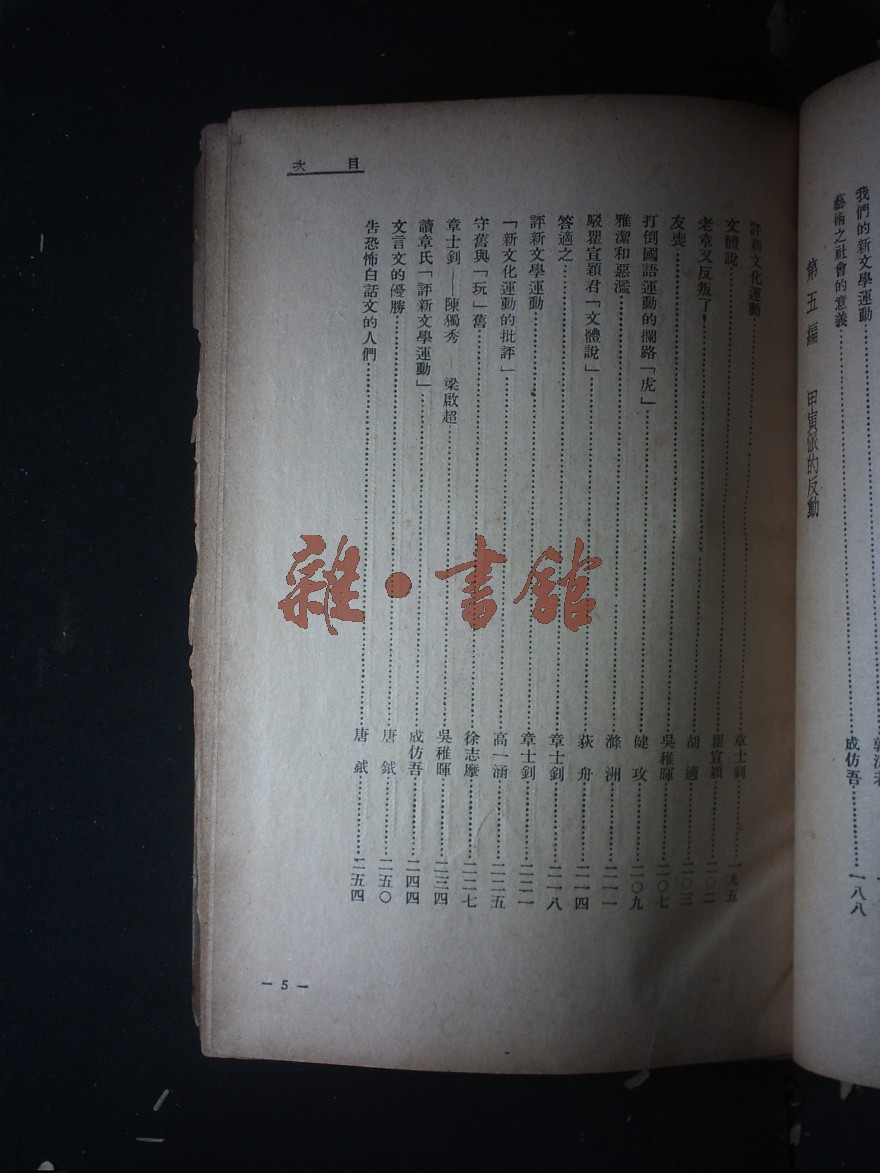 我們的新文學運動
藝術之社會的意義……成仿吾……一八八
第五編 甲寅派的反動
目次
評新文化運動……章士釗……一九五
文體說……瞿宣穎……二〇二
老章又反叛了！……胡適……二〇三
友喪……吳稚暉……二〇七
打倒國語運動的攔路「虎」……健攻……二〇九
雅潔和惡濫……滌洲……二一一
駁瞿宣穎君「文體說」……荻舟……二一四
答適之……章士釗……二一八
評新文學運動……章士釗……二二一
「新文化運動的批評」……高一涵……二二五
守舊與「玩」舊……徐志摩……二二七
章士釗——陳獨秀——梁啟超……吳稚暉……二三四
讀章氏「評新文學運動」……成仿吾……二四四
文言文的優勝……唐鉞……二五〇
告恐怖白話文的人們……唐鉞……二五四
— 5 —
雜·書館